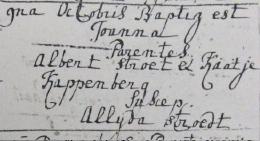 9na Octobris Baptiz est
Joanna
Parentes
Albert Stroet et Kaatje
Kappenberg
Suscep.
Allyda Stroedt